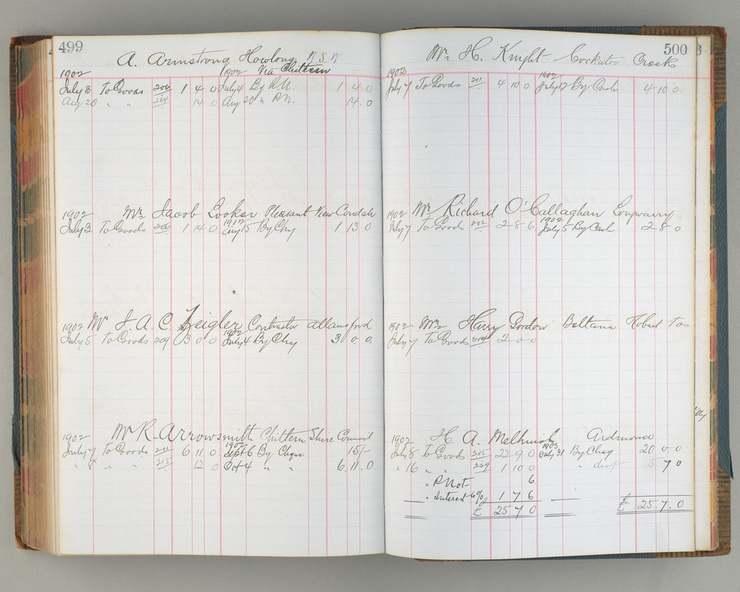 499
A. Armstrong Howlong N.S.W
1902 1902 Via Chiltern
July 3 To Goods 204 1 4 0 July 4 By P.N. 1 4 0
Aug 20 " " 14 0 Aug 20 " P.N. 14 0
Mr Jacob Looker Pleasant View Condah
1902
July 3 To Goods 1 14 0 Aug 15 By Chq 1 13 0
1902 Mr J. A. C. Zeigler Contractor Allansford
1902
July 5 To Goods 209 3 0 0 July 4 By Chq 3 0 0
Mr R. Arrowsmith Chiltern Shire Council
1902 1902
July 7 To Goods 211 6 11 0 Sept 6 By Cheque 15/-
" " " Oct 4 " " 6 11 0
500
Mr H. Knight Cockatoo Creek
1902 1902
July 7 To Goods 4 10 0 July 12 By Cash 4 10 0
1902 Mr Richard O'Callaghan
1902
July 7 To Goods 212 2 8 6 July 5 By Cash 2 8 0
1902 Mr Harry Gordon Beltana Hobart Tas
July 7 To Goods 2 0 0
1902 H. A. Melhuish Ardmona
July 8 To Goods 22 9 0 July 31 By Cheq 20 0 0
" 16 " " 1 10 0 " 5 7 0
" P. Not 6
" Interest 6% 1 7 6
£ 25 7 0 £ 25.7.0